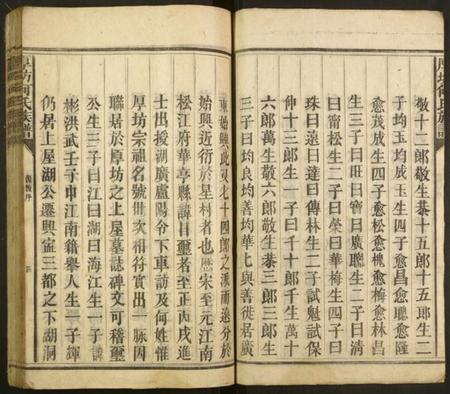 敬十二郎敬生恭十五郎十五郎生二
子均玉均成玉生四子愈昌愈聰愈隆
愈茂成生四子愈松愈槐愈梅愈林昌
生三子曰旺曰寶曰廣聰生二子曰清
曰甯松生二子曰榮曰華梅生四子曰
珠曰遠曰達曰傳林生二子試魁試保
仲十三郎生一子千十郎千生萬十
一郎生敬六郎敬生恭三郎三郎生
三子曰均良均善均華七與善徙居廣
東始興此又七十四郎之派而遠分於
始興近衍於星村者也歷宋至元江南
松江府華亭縣諱目璽者至正丙戌進
士出授湖廣盧陽令下車訪及何姓惟
厚坊宗祖名號世次相符實出一脉因
聯居於厚坊之上屋墓誌碑文可稽璽
公生三子曰江曰湖曰海江生一子諱
彬洪武壬子中江南籍舉人生一子鐸
仍居上屋湖公遷興甯三都之下湖洞
厚坊何氏族譜
舊譜序
厚坊何氏族譜